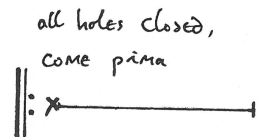 all holes closed,
come prima